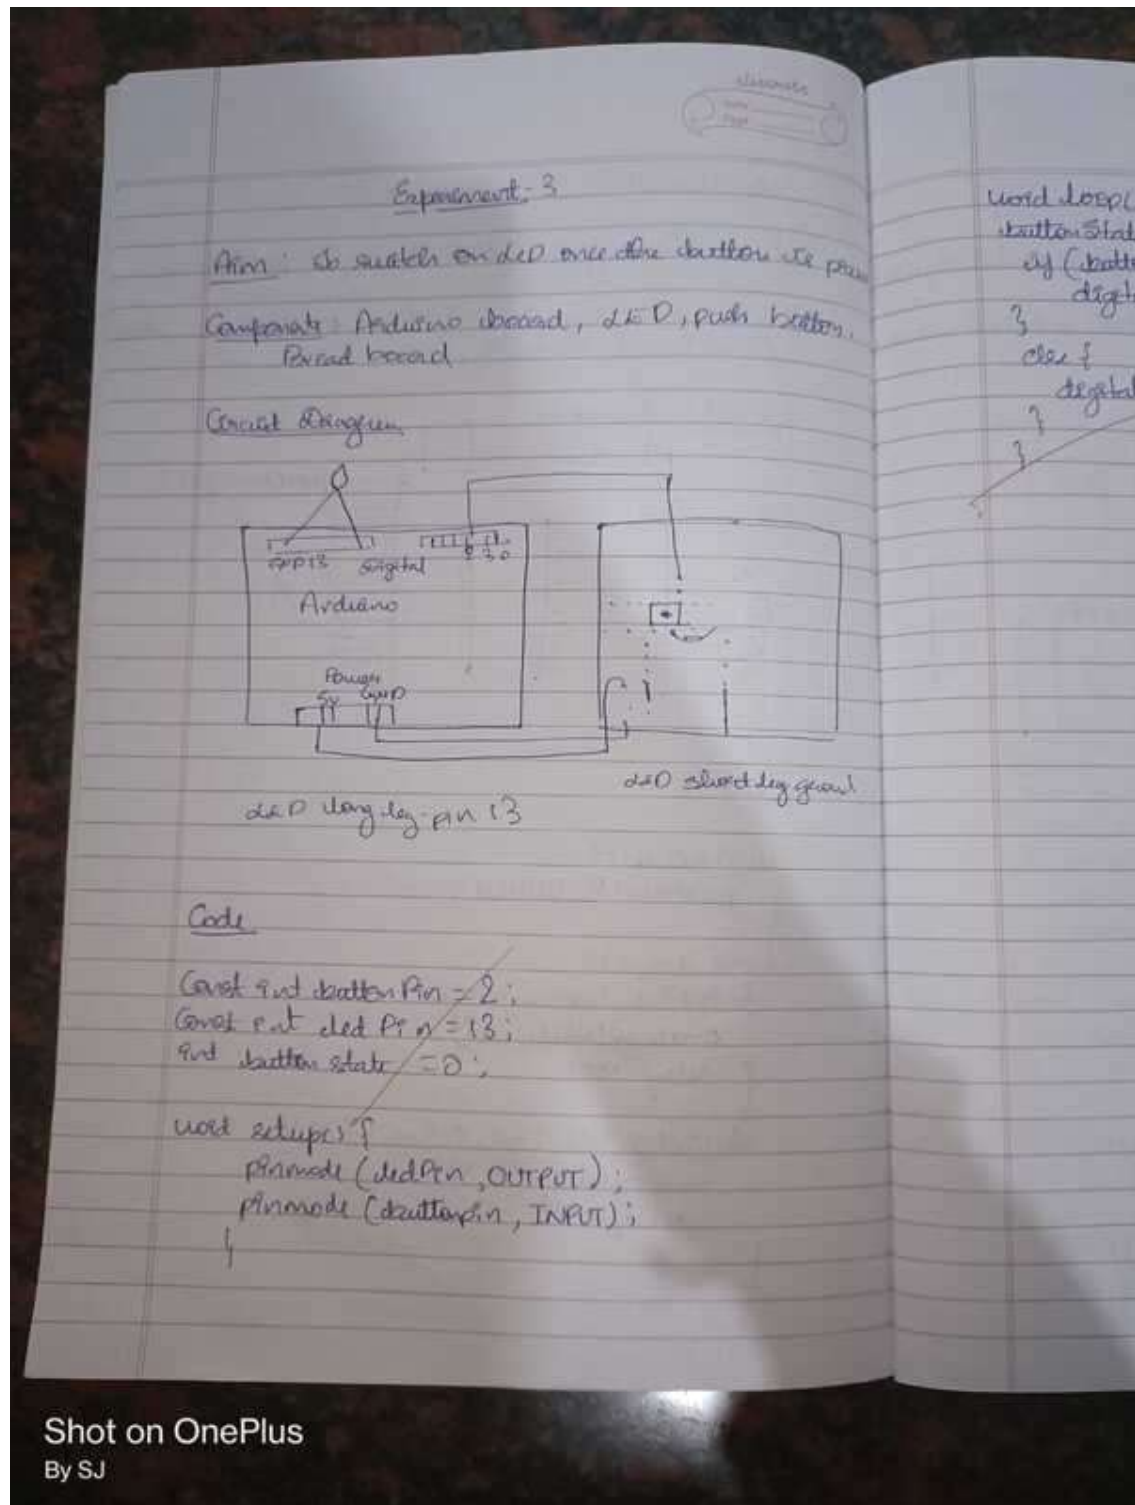 classmate
Date
Page
Experiment - 3
Aim : To switch on LED once the button is
Components : Arduino board, LED, push button,
Bread board
Circuit Diagram
GND 13 Digital 2 3 0
Arduino
Power
5V GND
LED short leg
LED long leg - pin 13
Code
Const int button Pin = 2;
Const int led Pin = 13;
int button state = 0;
void setup() {
pinmode (ledPin, OUTPUT);
pinmode (buttonpin, INPUT);
}
void loop(
buttonStat
if (butto
digit
}
else {
digital
}
}
Shot on OnePlus
By SJ